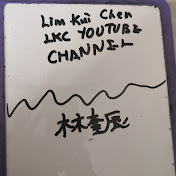 Lim Kui Chen
LKC YOUTUBE
CHANNEL
林奎辰